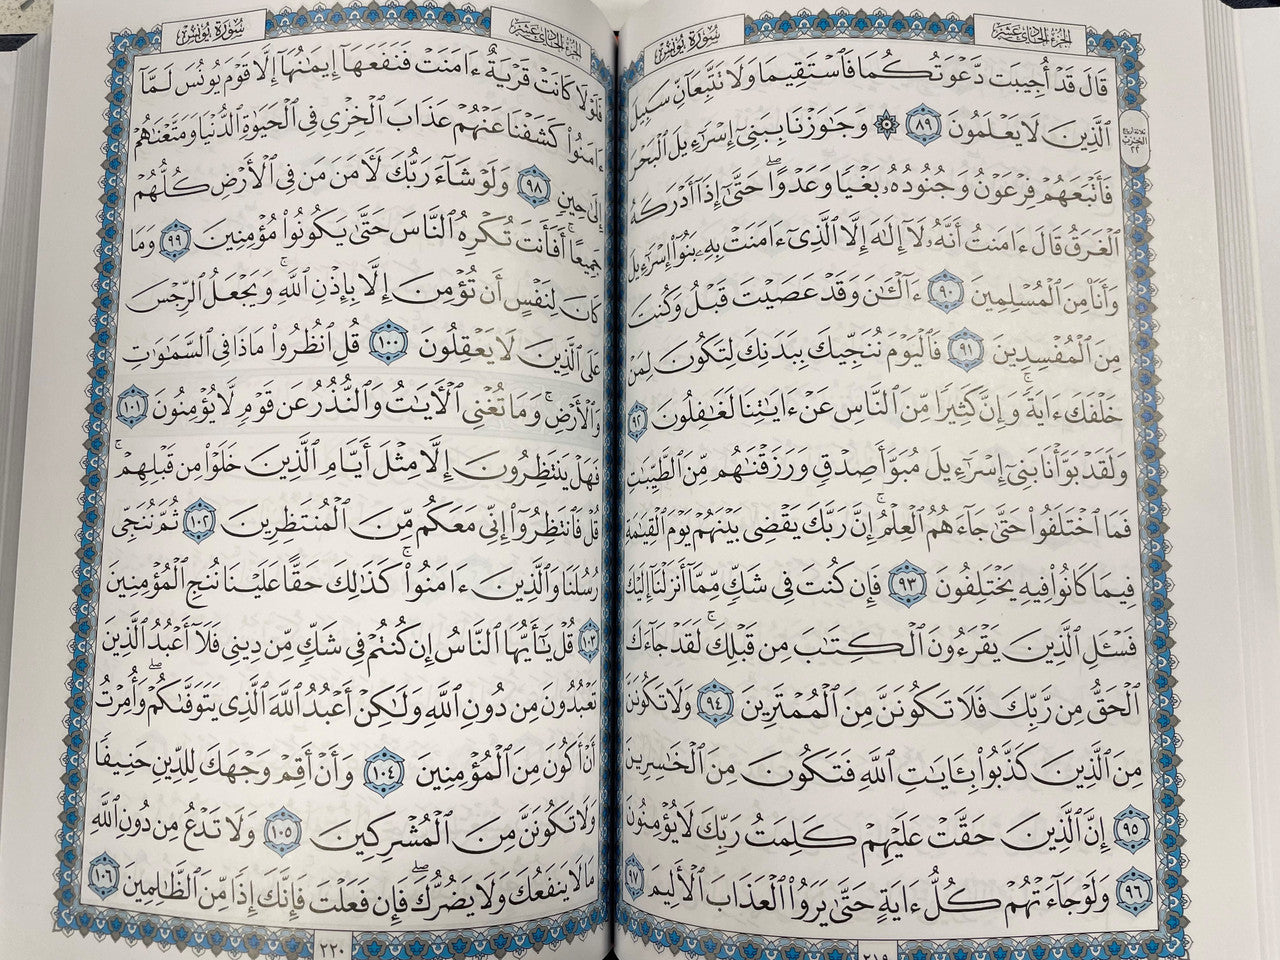 الجزء الحادي عشر
سورة يونس
قَالَ قَدْ أُجِيبَت دَّعْوَتُكُمَا فَٱسْتَقِيمَا وَلَا تَتَّبِعَآنِّ سَبِيلَ
ٱلَّذِينَ لَا يَعْلَمُونَ ٨٩ ۞ وَجَٰوَزْنَا بِبَنِىٓ إِسْرَٰٓءِيلَ ٱلْبَحْرَ
فَأَتْبَعَهُمْ فِرْعَوْنُ وَجُنُودُهُۥ بَغْيًا وَعَدْوًا ۖ حَتَّىٰٓ إِذَآ أَدْرَكَهُ
ٱلْغَرَقُ قَالَ ءَامَنتُ أَنَّهُۥ لَآ إِلَٰهَ إِلَّا ٱلَّذِىٓ ءَامَنَتْ بِهِۦ بَنُوٓا۟ إِسْرَٰٓءِيلَ
وَأَنَا۠ مِنَ ٱلْمُسْلِمِينَ ٩٠ ءَآلْـَٰٔنَ وَقَدْ عَصَيْتَ قَبْلُ وَكُنتَ
مِنَ ٱلْمُفْسِدِينَ ٩١ فَٱلْيَوْمَ نُنَجِّيكَ بِبَدَنِكَ لِتَكُونَ لِمَنْ
خَلْفَكَ ءَايَةً ۚ وَإِنَّ كَثِيرًا مِّنَ ٱلنَّاسِ عَنْ ءَايَٰتِنَا لَغَٰفِلُونَ ٩٢
وَلَقَدْ بَوَّأْنَا بَنِىٓ إِسْرَٰٓءِيلَ مُبَوَّأَ صِدْقٍ وَرَزَقْنَٰهُم مِّنَ ٱلطَّيِّبَٰتِ
فَمَا ٱخْتَلَفُوا۟ حَتَّىٰ جَآءَهُمُ ٱلْعِلْمُ ۚ إِنَّ رَبَّكَ يَقْضِى بَيْنَهُمْ يَوْمَ ٱلْقِيَٰمَةِ
فِيمَا كَانُوا۟ فِيهِ يَخْتَلِفُونَ ٩٣ فَإِن كُنتَ فِى شَكٍّ مِّمَّآ أَنزَلْنَآ إِلَيْكَ
فَسْـَٔلِ ٱلَّذِينَ يَقْرَءُونَ ٱلْكِتَٰبَ مِن قَبْلِكَ ۚ لَقَدْ جَآءَكَ
ٱلْحَقُّ مِن رَّبِّكَ فَلَا تَكُونَنَّ مِنَ ٱلْمُمْتَرِينَ ٩٤ وَلَا تَكُونَنَّ
مِنَ ٱلَّذِينَ كَذَّبُوا۟ بِـَٔايَٰتِ ٱللَّهِ فَتَكُونَ مِنَ ٱلْخَٰسِرِينَ
٩٥ إِنَّ ٱلَّذِينَ حَقَّتْ عَلَيْهِمْ كَلِمَتُ رَبِّكَ لَا يُؤْمِنُونَ
٩٦ وَلَوْ جَآءَتْهُمْ كُلُّ ءَايَةٍ حَتَّىٰ يَرَوُا۟ ٱلْعَذَابَ ٱلْأَلِيمَ ٩٧
٢١٩
ثلاثة أرباع
الحزب
٢٢
سورة يونس
الجزء الحادي عشر
فَلَوْلَا كَانَتْ قَرْيَةٌ ءَامَنَتْ فَنَفَعَهَآ إِيمَٰنُهَآ إِلَّا قَوْمَ يُونُسَ لَمَّآ
ءَامَنُوا۟ كَشَفْنَا عَنْهُمْ عَذَابَ ٱلْخِزْىِ فِى ٱلْحَيَوٰةِ ٱلدُّنْيَا وَمَتَّعْنَٰهُمْ
إِلَىٰ حِينٍ ٩٨ وَلَوْ شَآءَ رَبُّكَ لَءَامَنَ مَن فِى ٱلْأَرْضِ كُلُّهُمْ
جَمِيعًا ۚ أَفَأَنتَ تُكْرِهُ ٱلنَّاسَ حَتَّىٰ يَكُونُوا۟ مُؤْمِنِينَ ٩٩ وَمَا
كَانَ لِنَفْسٍ أَن تُؤْمِنَ إِلَّا بِإِذْنِ ٱللَّهِ ۚ وَيَجْعَلُ ٱلرِّجْسَ
عَلَى ٱلَّذِينَ لَا يَعْقِلُونَ ١٠٠ قُلِ ٱنظُرُوا۟ مَاذَا فِى ٱلسَّمَٰوَٰتِ
وَٱلْأَرْضِ ۚ وَمَا تُغْنِى ٱلْـَٔايَٰتُ وَٱلنُّذُرُ عَن قَوْمٍ لَّا يُؤْمِنُونَ ١٠١
فَهَلْ يَنتَظِرُونَ إِلَّا مِثْلَ أَيَّامِ ٱلَّذِينَ خَلَوْا۟ مِن قَبْلِهِمْ ۚ
قُلْ فَٱنتَظِرُوٓا۟ إِنِّى مَعَكُم مِّنَ ٱلْمُنتَظِرِينَ ١٠٢ ثُمَّ نُنَجِّى
رُسُلَنَا وَٱلَّذِينَ ءَامَنُوا۟ ۚ كَذَٰلِكَ حَقًّا عَلَيْنَا نُنجِ ٱلْمُؤْمِنِينَ
١٠٣ قُلْ يَٰٓأَيُّهَا ٱلنَّاسُ إِن كُنتُمْ فِى شَكٍّ مِّن دِينِى فَلَآ أَعْبُدُ ٱلَّذِينَ
تَعْبُدُونَ مِن دُونِ ٱللَّهِ وَلَٰكِنْ أَعْبُدُ ٱللَّهَ ٱلَّذِى يَتَوَفَّىٰكُمْ ۖ وَأُمِرْتُ
أَنْ أَكُونَ مِنَ ٱلْمُؤْمِنِينَ ١٠٤ وَأَنْ أَقِمْ وَجْهَكَ لِلدِّينِ حَنِيفًا
وَلَا تَكُونَنَّ مِنَ ٱلْمُشْرِكِينَ ١٠٥ وَلَا تَدْعُ مِن دُونِ ٱللَّهِ
مَا لَا يَنفَعُكَ وَلَا يَضُرُّكَ ۖ فَإِن فَعَلْتَ فَإِنَّكَ إِذًا مِّنَ ٱلظَّٰلِمِينَ ١٠٦
٢٢٠